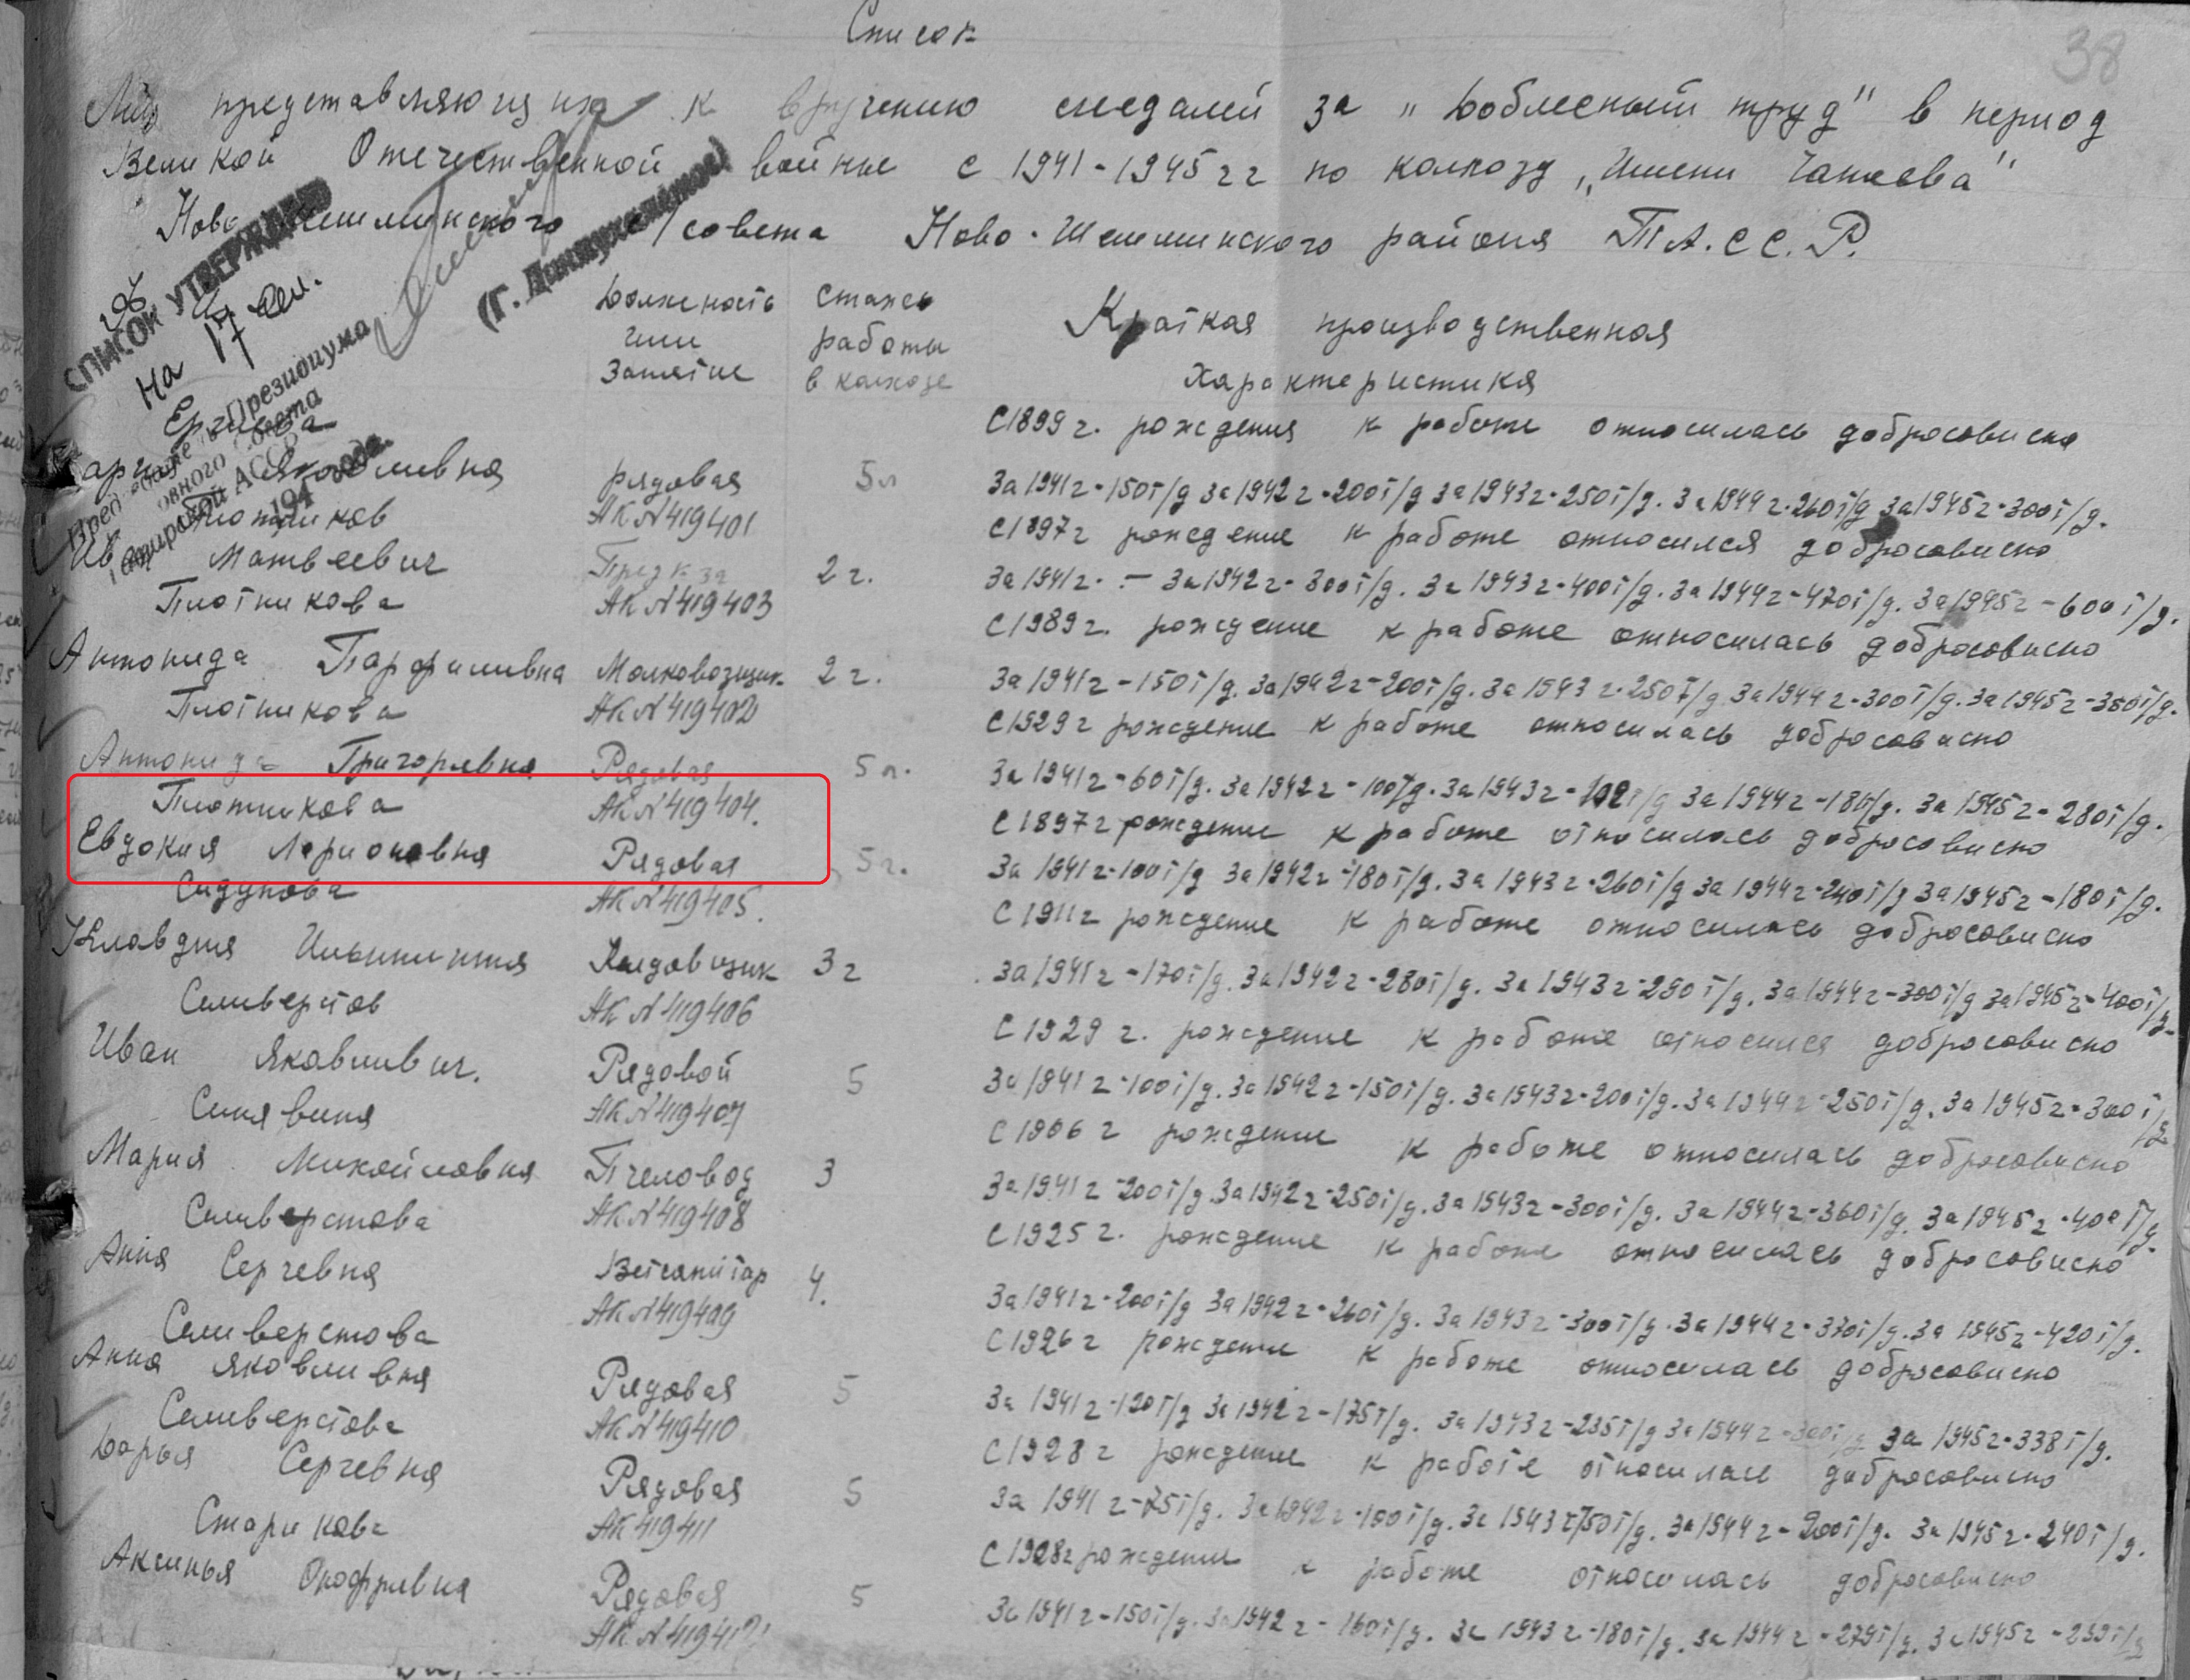 38
Список
Лиц представляющихся к вручению медалей за "Доблесный труд" в период
Великой Отечественной войные с 1941-1945 гг по колхозу "Имени Чапаева"
Ново Шешминского с/совета Ново-Шешминского района Т.А.С.С.Р.
СПИСОК УТВЕРЖДАЮ
На 17 чел.
Президиума
(Г. Динмухаметов)
Должность или Занятие
Стаж работы в колхозе
Краткая производственная
Характеристика
С 1899 г. рождения к работе относилась добросовисно
Яковливна рядовая 5 л За 1941 г-150 т/д за 1942 г-200 т/д за 1943 г-250 т/д. За 1944 г-260 т/д за 1945 г-300 т/д.
Плотников АК N 419401 С 1897 г рождение к работе относился добросовисно
Иван Матвеевич Пред к-за 2 г. За 1941 г. - За 1942 г-300 т/д. За 1943 г-400 т/д. За 1944 г-470 т/д. За 1945 г-600 т/д.
Плотникова АК N 419403 С 1989 г. рождение к работе относилась добросовисно
Антонида Парфиливна Молковозчик 2 г. За 1941 г-150 т/д. За 1942 г-200 т/д. За 1943 г-250 т/д За 1944 г-300 т/д. За 1945 г-350 т/д.
Плотникова АК N 419402 С 1929 г рождение к работе относилась добросависно
Антонида Григорьевна Рядовая 5 л. За 1941 г-60 т/д. За 1942 г-100 т/д. За 1943 г- За 1944 г-180 т/д. За 1945 г-280 т/д.
Плотникова АК N 419404. С 1897 г рождение к работе относилась добросовисно
Евдокия Ларионовна Рядовая 5 г. За 1941 г-100 т/д За 1942 г-180 т/д. За 1943 г-260 т/д За 1944 г-240 т/д За 1945 г-180 т/д.
Сидунова АК N 419405. С 1911 г рождение к работе относилась добросовисно
Клавдия Ильинична Кладовщик 3 г За 1941 г-170 т/д. За 1942 г-280 т/д. За 1943 г-290 т/д. За 1944 г-300 т/д За 1945 г-400 т/д.
Селиверстов АК N 419406 С 1929 г. рождение к работе относился добросовисно
Иван Яковливич. Рядовой 5 За 1941 г-100 т/д. За 1942 г-150 т/д. За 1943 г-200 т/д. За 1944 г-250 т/д. За 1945 г-300 т/д
Синявина АК N 419407 С 1906 г рождение к работе относилась добросовисно
Мария Михойловна Пчеловод 3 За 1941 г-200 т/д. За 1942 г-250 т/д. За 1943 г-300 т/д. За 1944 г-360 т/д. За 1945 г-400 т/д.
Селиверстова АК N 419408 С 1925 г. рождение к работе относилась добросовисно
Анна Сергевна Ветсанитар 4. За 1941 г-200 т/д За 1942 г-260 т/д. За 1943 г-300 т/д. За 1944 г-370 т/д. За 1945 г-420 т/д.
Селиверстова АК N 419409 С 1926 г рождение к работе относилась добросовисно
Анна Яковливна Рядовая 5 За 1941 г-120 т/д За 1942 г-175 т/д. За 1943 г-235 т/д За 1944 г-300 т/д За 1945 г-338 т/д.
Селиверстова АК N 419410 С 1928 г рождение к работе относилась добросовисно
Дарья Сергевна Рядовая 5 За 1941 г-75 т/д. За 1942 г-100 т/д. За 1943 г-150 т/д. За 1944 г-200 т/д. За 1945 г-240 т/д.
Старикова АК 419411 С 1908 г рождение к работе относилась добросовисно
Аксинья Онофривна Рядовая 5 За 1941 г-150 т/д. За 1942 г-160 т/д. За 1943 г-180 т/д. За 1944 г-279 т/д. За 1945 г-299 т/д
АК N 419412